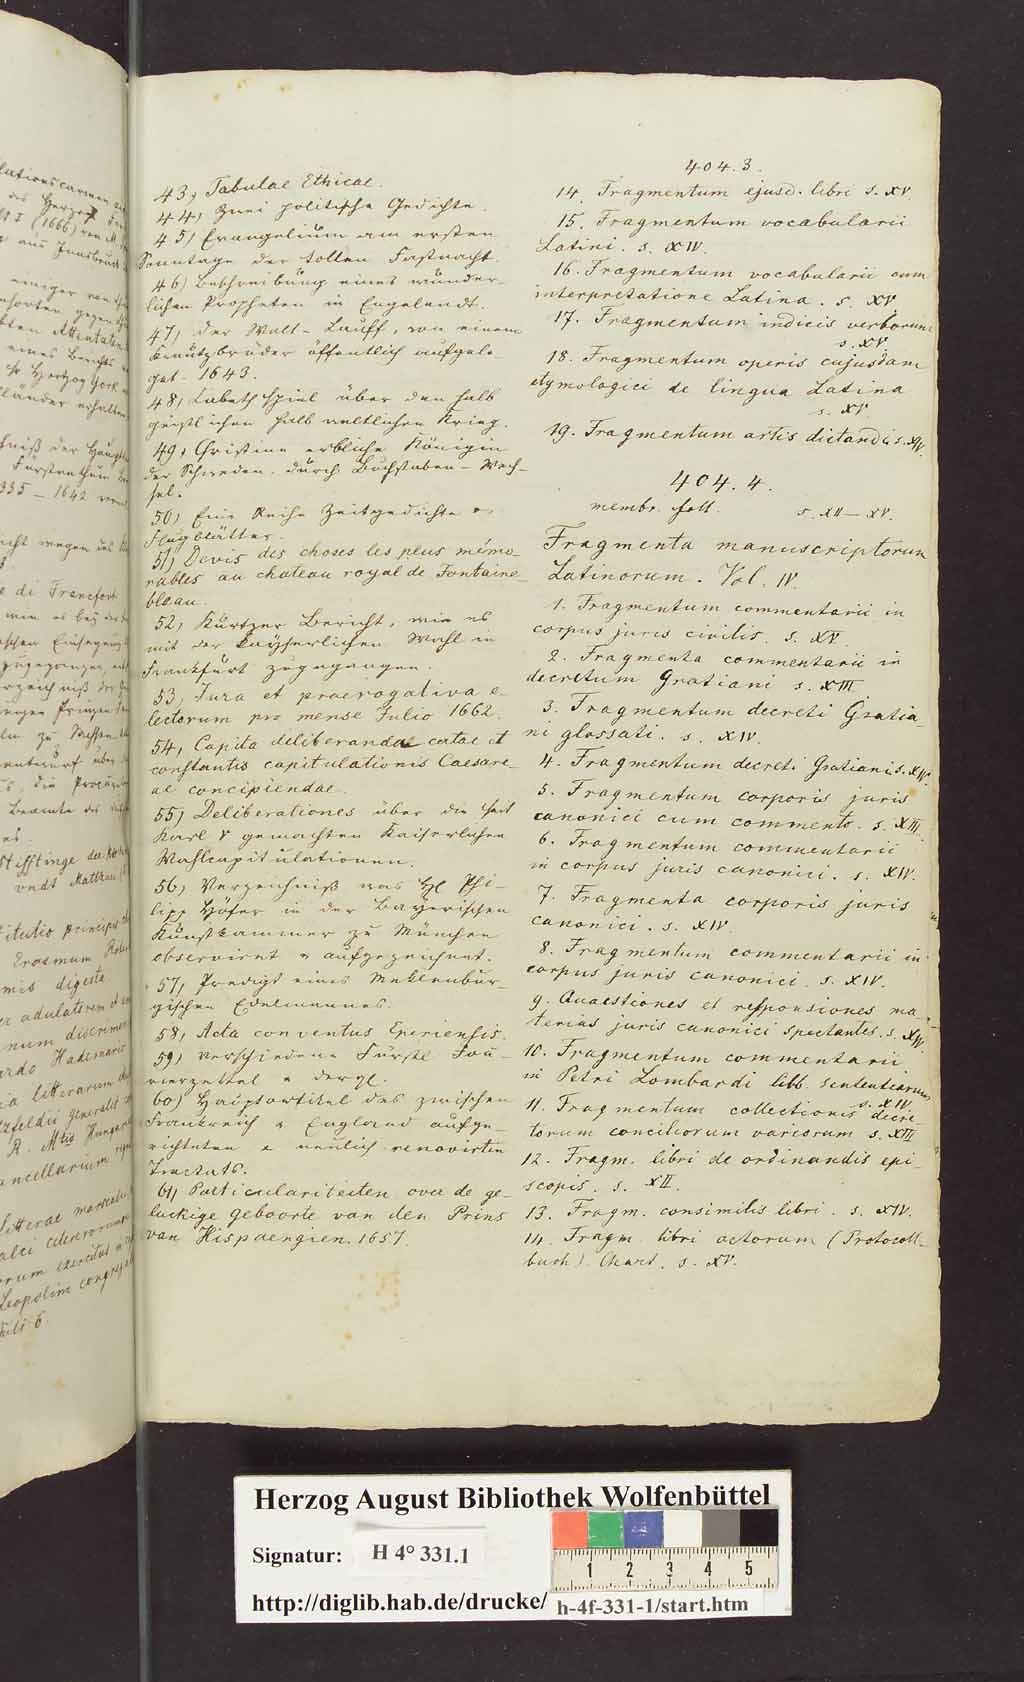 43, Tabulae Ethicae.
44, Zwei politische Gedichte
45) Evangelium am ersten
Sonntage der tollen Fastnacht.
46) Beschreibung eines wunder-
lichen Propheten in Engelandt.
47) Der Welt-Lauff, von einem
Creutzbruder öffentlich aufgele
get. 1643.
48, Labethspiel über den halb
geistlichen halb weltlichen Krieg.
49, Christina erbliche Königin
der Schweden. durch Buchstaben-Wech-
sel.
50) Eine Reihe Zeitgedichte
Flugblätter.
51) Devis des choses les plus mémo-
rables au chateau royal de Fontaine-
bleau.
52, Kurtzer Bericht, wie es
mit der Kayserlichen Wahl in
Frankfurt zugegangen.
53, Jura et praerogativa e-
lectorum pro mense Julio 1662.
54, Capita deliberandae certae et
constantis capitulationis Caesare-
ae concipiendae.
55) Deliberationes über die seit
Karl V gemachten Kaiserlichen
Wahlcapitulationen.
56, Verzeichniß was Phi-
lipp Höfer in der Bayerischen
Kunstkammer zu München
observirent u aufgezeichnet.
57, Predigt eines Meklenbur-
gischen Edelmannes.
58, Acta conventus Eperiensis.
59) Verschiedene Fürstl Fou
rierzettel u dergl.
60) Hauptartikel des zwischen
Frankreich u England aufge-
richteten u neulich renovirten
Tractats.
61, Particulariteiten over de ge-
luckige geboorte van den Prins
van Hispaengien. 1657.
404.3.
14. Fragmentum ejusd. libri s. XV.
15. Fragmentum vocabularii
Latini. s. XIV.
16. Fragmentum vocabularii cum
interpretatione Latina. s. XV.
17. Fragmentum indicis verborum
s. XV.
18. Fragmentum operis cujusdam
etymologici de lingua Latina
s. XV.
19. Fragmentum artis dictandi s. XIV.
404.4.
membr. foll. s. XII–XV.
Fragmenta manuscriptorum
Latinorum. Vol. IV.
1. Fragmentum commentarii in
corpus juris civilis. s. XV.
2. Fragmenta commentarii in
decretum Gratiani s. XIII.
3. Fragmentum decreti Gratia-
ni glossati. s. XIV.
4. Fragmentum decreti Gratiani s. XIV.
5. Fragmentum corporis juris
canonici cum commento. s. XIII.
6. Fragmentum commentarii
in corpus juris canonici. s. XIV.
7. Fragmenta corporis juris
canonici. s. XIV.
8. Fragmentum commentarii in
corpus juris canonici. s. XIV.
9. Quaestiones et responsiones ma-
terias juris canonici spectantes. s. XIV.
10. Fragmentum commentarii
in Petri Lombardi libb. sententiarum
s. XIV.
11. Fragmentum collectionis decre
torum conciliorum variorum s. XIII
12. Fragm. libri de ordinandis epi-
scopis. s. XII.
13. Fragm. consimilis libri. s. XIV.
14. Fragm. libri actorum (Protocoll-
buch). Chart. s. XV.
Herzog August Bibliothek Wolfenbüttel
Signatur: H 4° 331.1
1 2 3 4 5
http://diglib.hab.de/drucke/ h-4f-331-1/start.htm